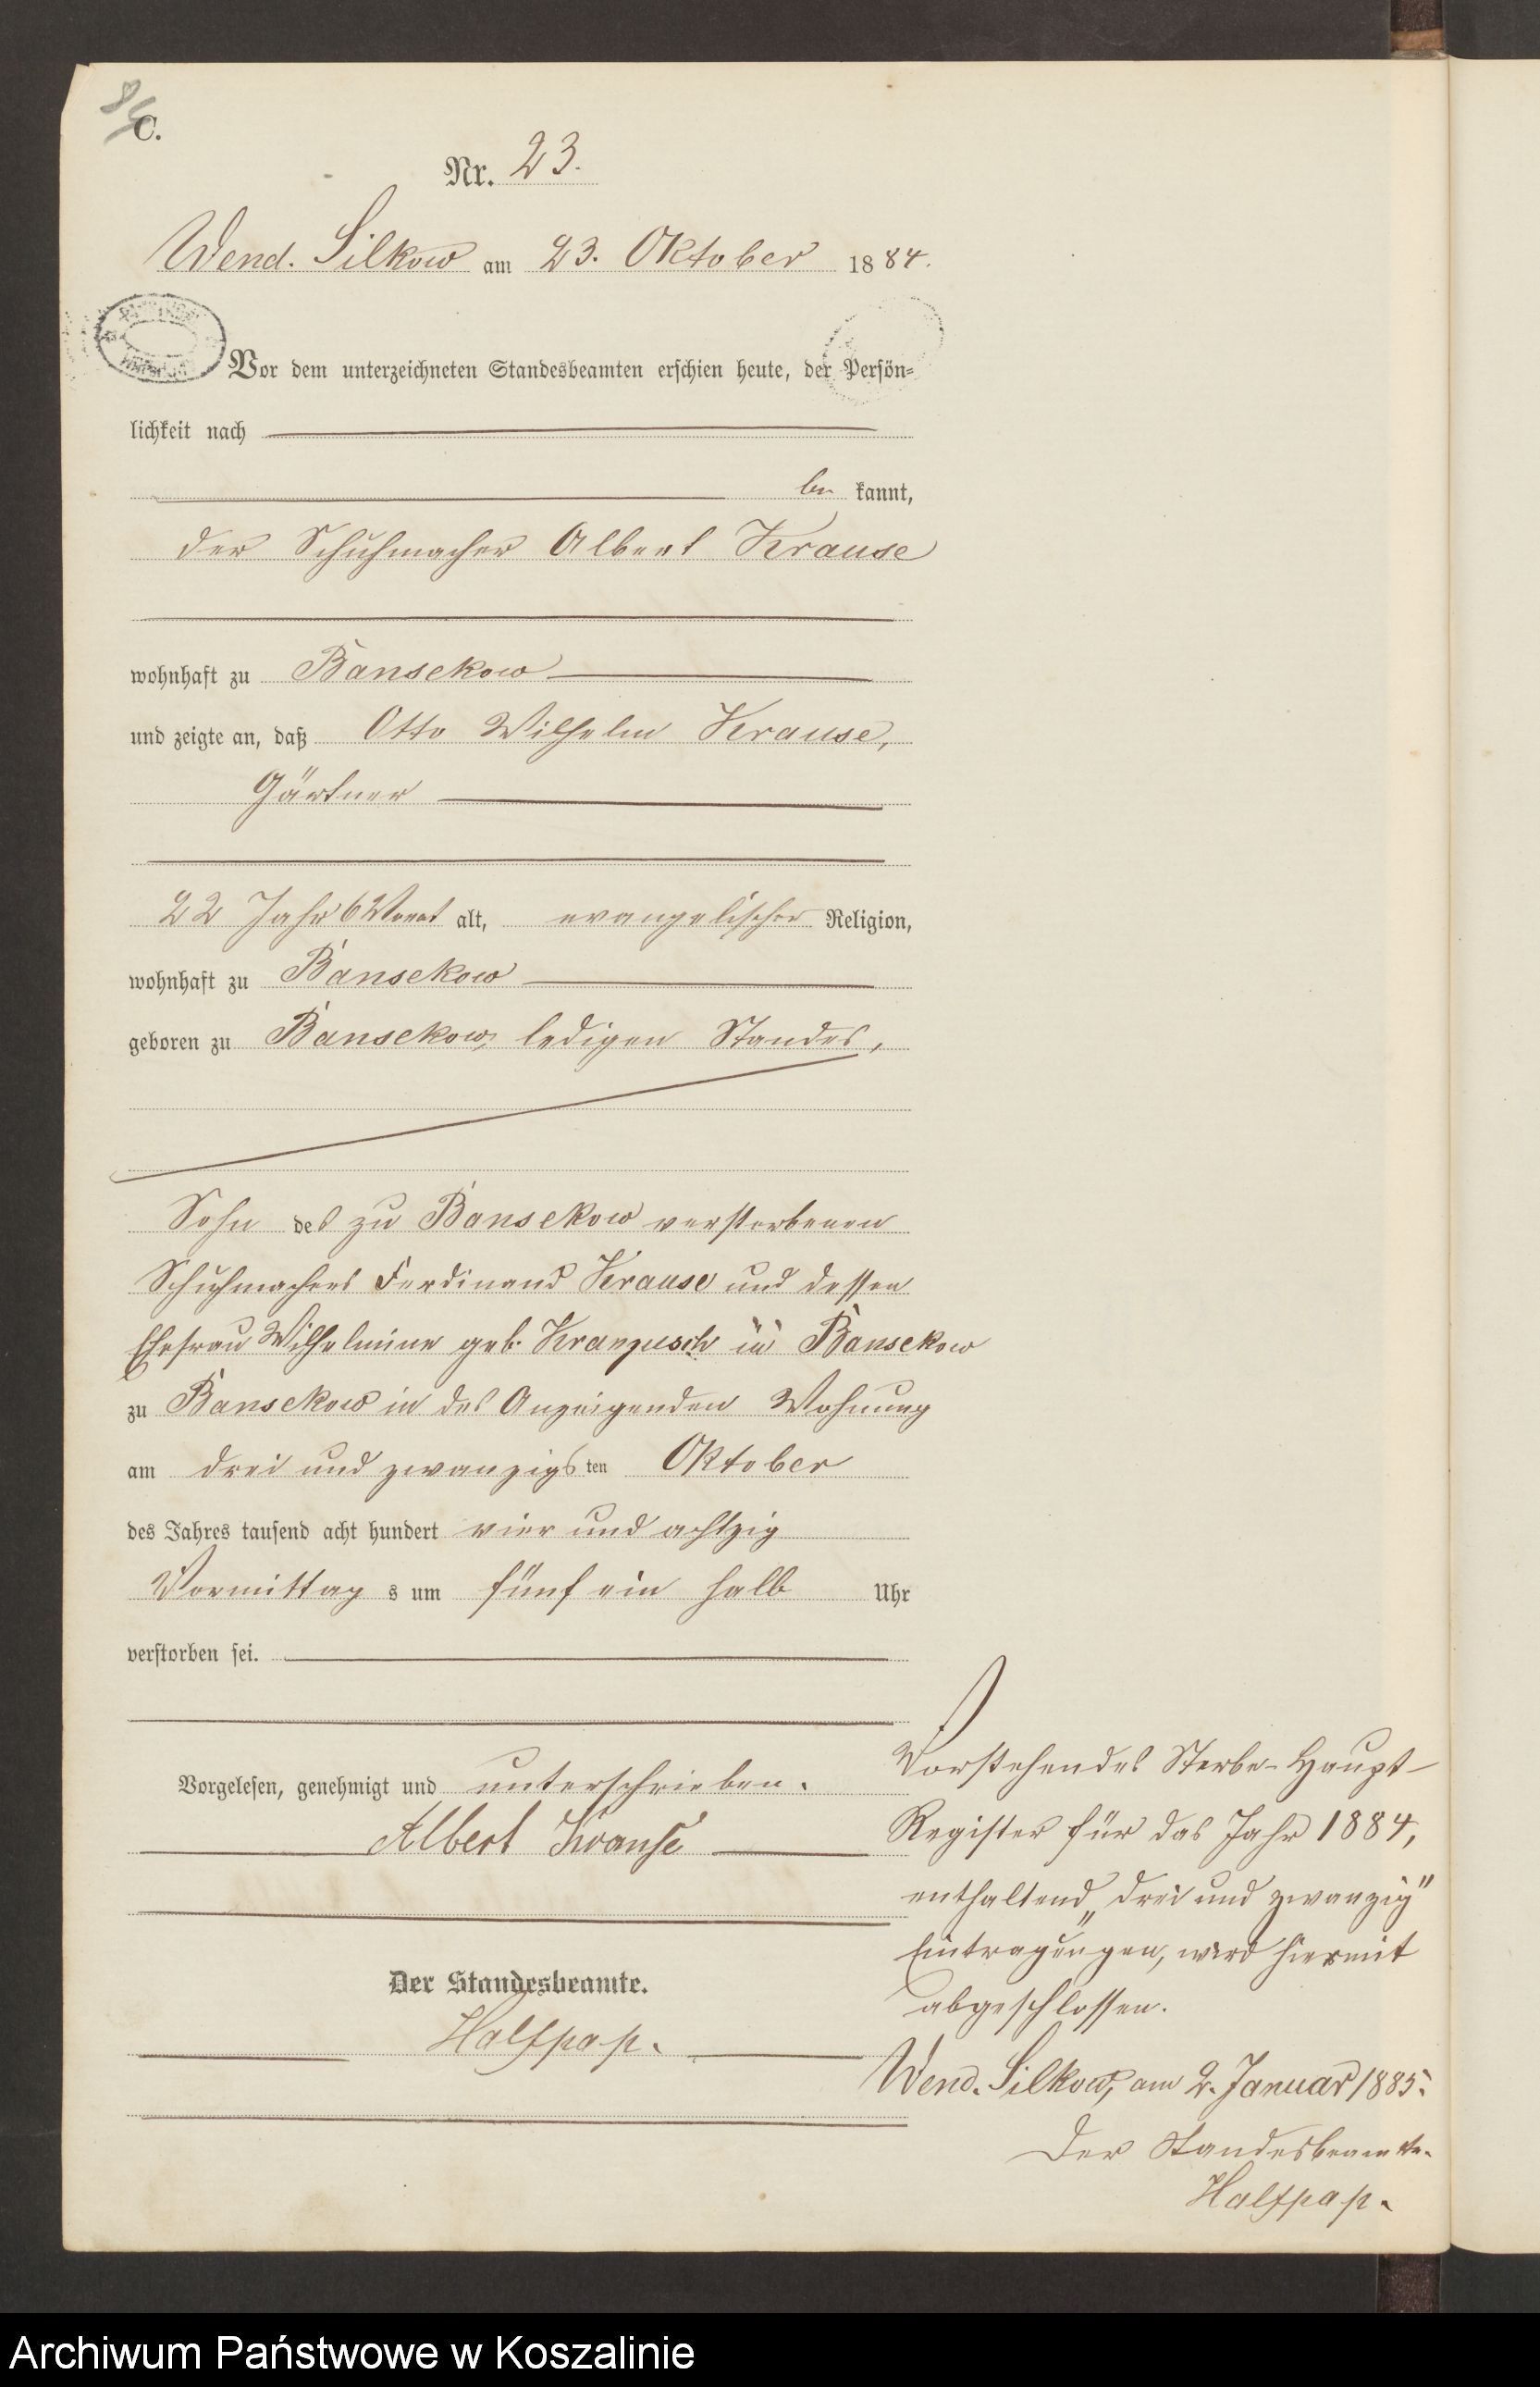 C.
Nr. 23.
Wend. Silkow am 23. Oktober 1884.
Vor dem unterzeichneten Standesbeamten erschien heute, der Persön-
lichkeit nach
be kannt,
der Schuhmacher Albert Krause
wohnhaft zu Bansekow
und zeigte an, daß Otto Wilhelm Krause,
Gärtner
22 Jahr 6 Monat alt, evangelischer Religion,
wohnhaft zu Bansekow
geboren zu Bansekow, ledigen Standes,
Sohn des zu Bansekow verstorbenen
Schuhmachers Ferdinand Krause und dessen
Ehefrau Wilhelmine geb. Kranzusch in Bansekow
zu Bansekow in des Anzeigenden Wohnung
am drei und zwanzigsten Oktober
des Jahres tausend acht hundert vier und achtzig
Vormittag s um fünf ein halb Uhr
verstorben sei.
Vorgelesen, genehmigt und unterschrieben.
Albert Krause
Der Standesbeamte.
Halfpap.
Vorstehendes Sterbe-Haupt-
Register für das Jahr 1884,
enthaltend „drei und zwanzig"
Eintragungen, wird hiermit
abgeschlossen.
Wend. Silkow, am 2. Januar 1885.
Der Standesbeamte.
Halfpap.
Archiwum Państwowe w Koszalinie